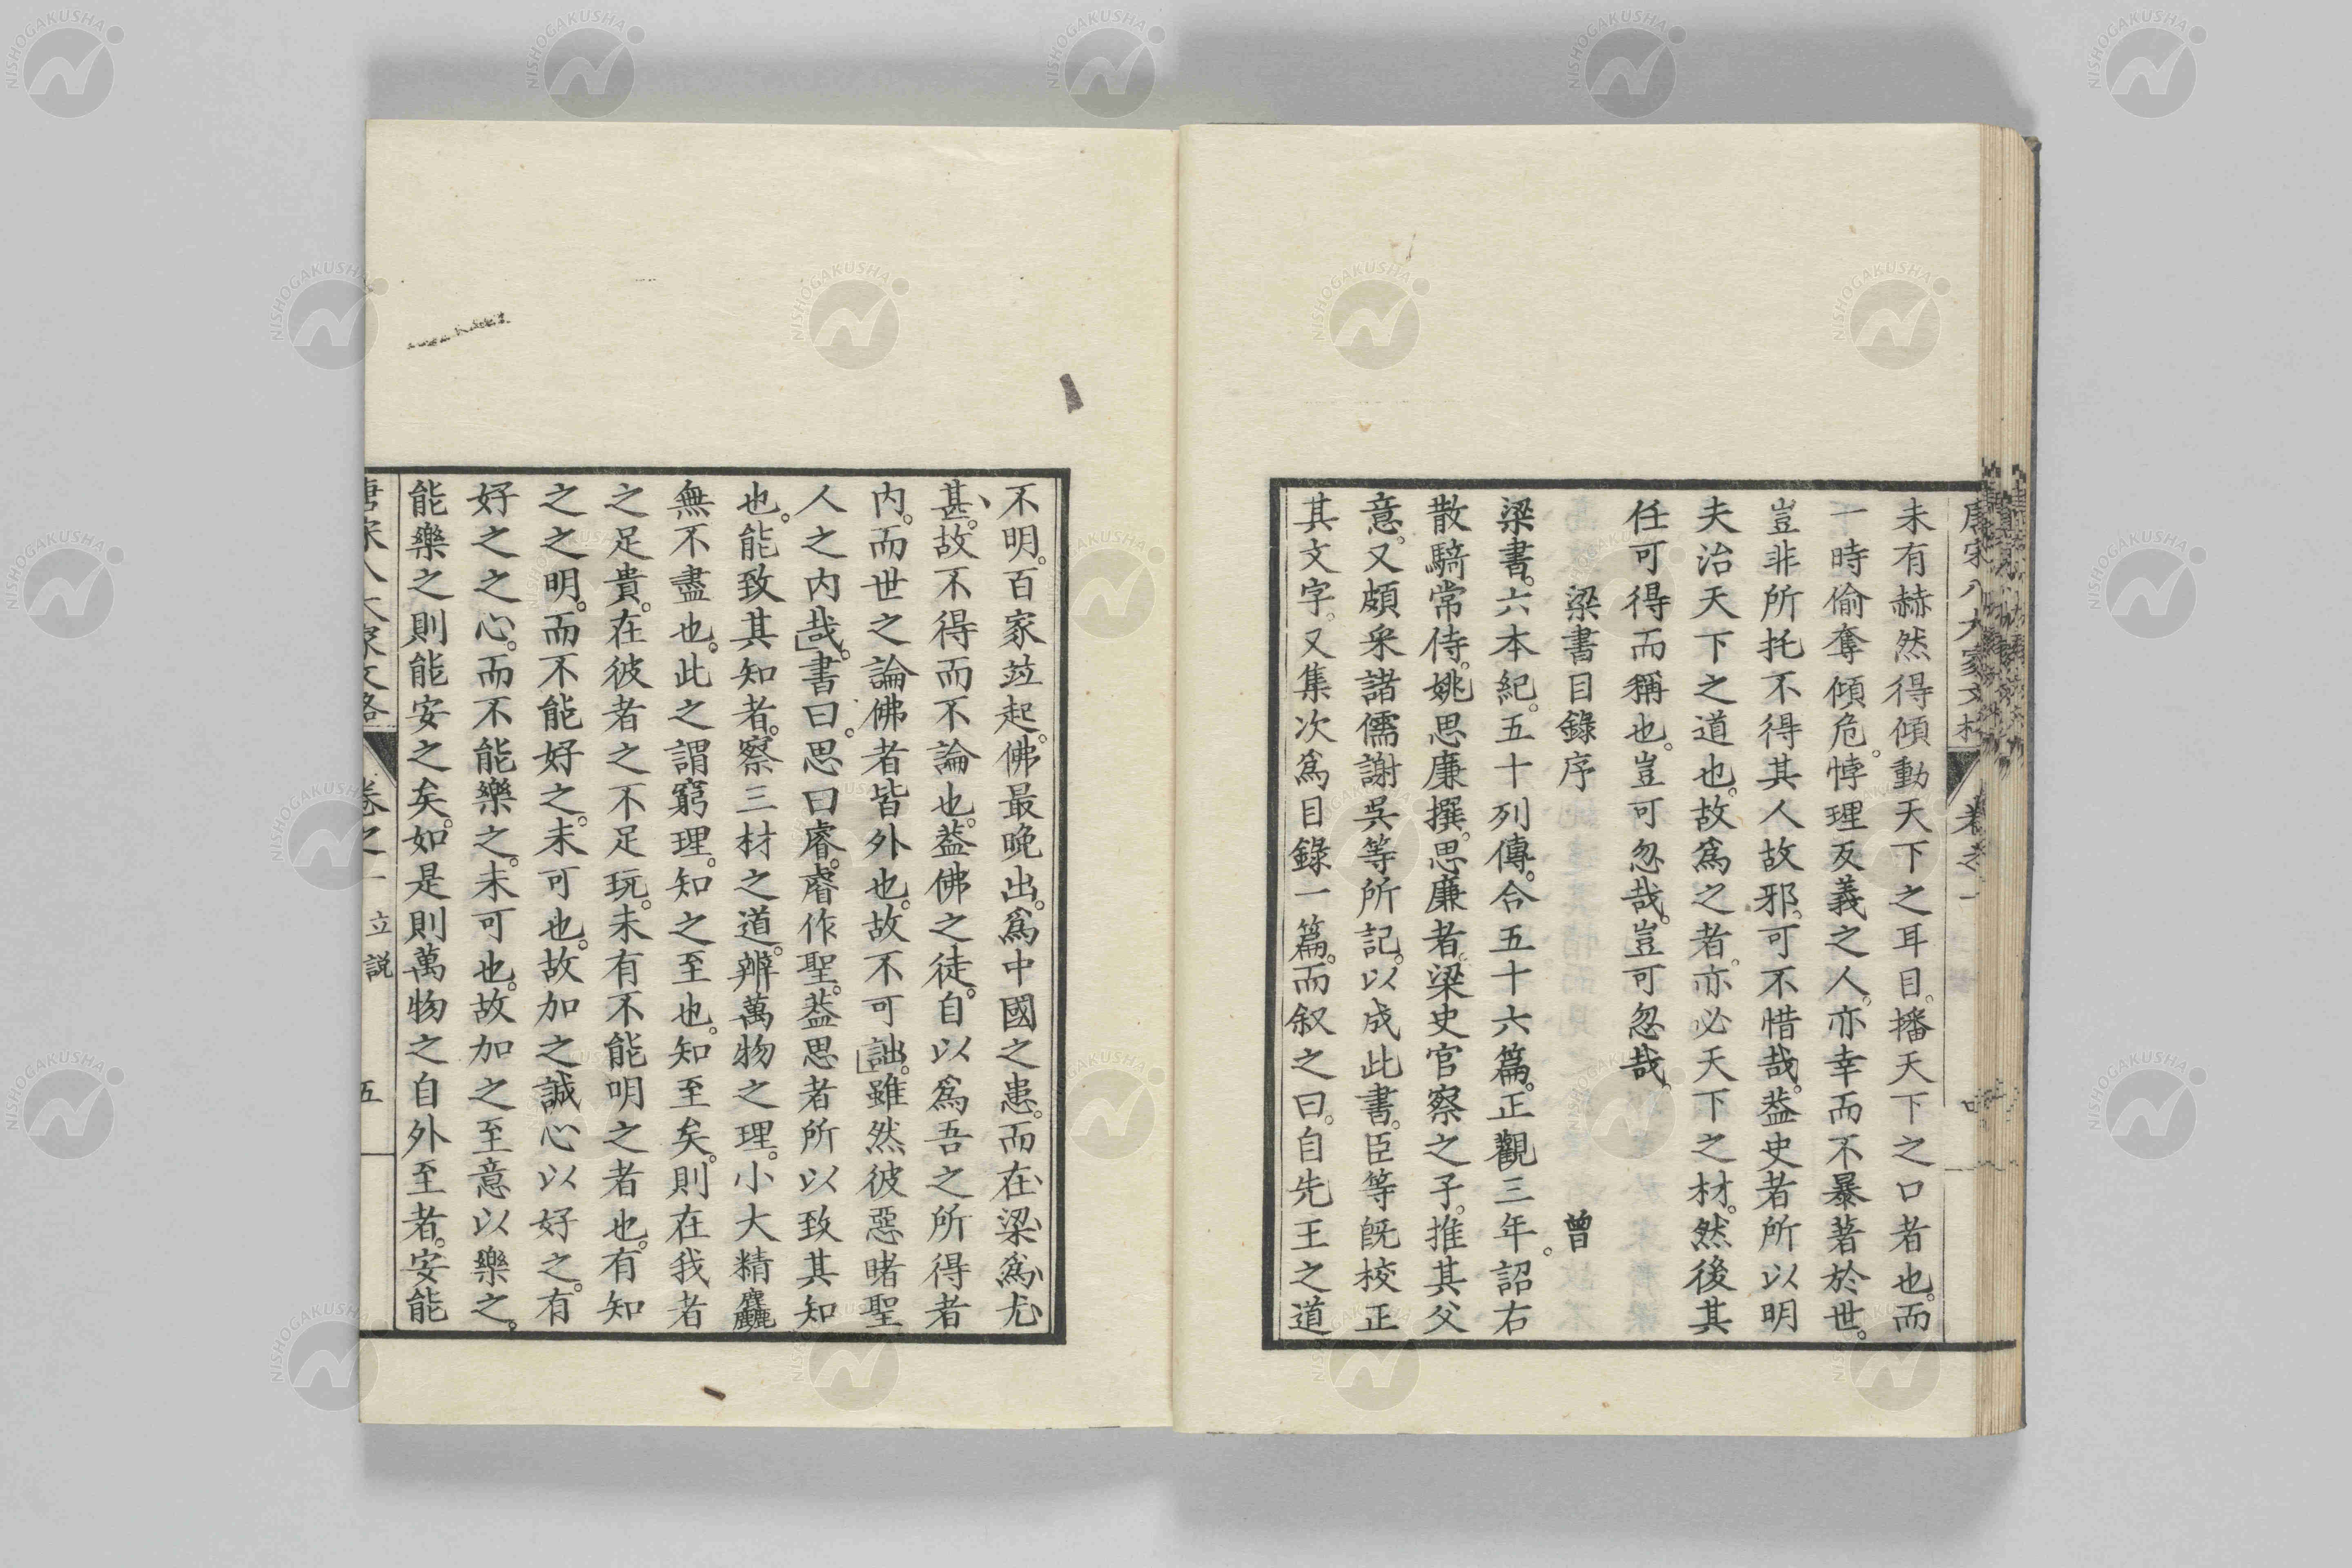 未有赫然得傾動天下之耳目。播天下之口者也。而
一時偷奪傾危。悖理反義之人。亦幸而不暴著於世。
豈非所托不得其人故邪。可不惜哉。葢史者所以明
夫治天下之道也。故爲之者。亦必天下之材。然後其
任可得而稱也。豈可忽哉。豈可忽哉。
梁書目錄序 曾
梁書。六本紀。五十列傳。合五十六篇。正觀三年。詔右
散騎常侍。姚思廉撰。思廉者。梁史官察之子。推其父
意。又頗采諸儒謝吳等所記。以成此書。臣等旣校正
其文字。又集次爲目錄一篇。而叙之曰。自先王之道
不明。百家竝起。佛最晚出。爲中國之患。而在梁爲尤
甚。故不得而不論也。葢佛之徒。自以爲吾之所得者
内。而世之論佛者皆外也。故不可詘。雖然彼惡睹聖
人之内哉。書曰。思曰睿。睿作聖。葢思者所以致其知
也。能致其知者。察三材之道。辨萬物之理。小大精麤
無不盡也。此之謂窮理。知之至也。知至矣。則在我者
之足貴。在彼者之不足玩。未有不能明之者也。有知
之之明。而不能好之。未可也。故加之誠心以好之。有
好之之心。而不能樂之。未可也。故加之至意以樂之。
能樂之則能安之矣。如是則萬物之自外至者。安能
唐宋八大家文格 卷之一 立説 五
NISHOGAKUSHA